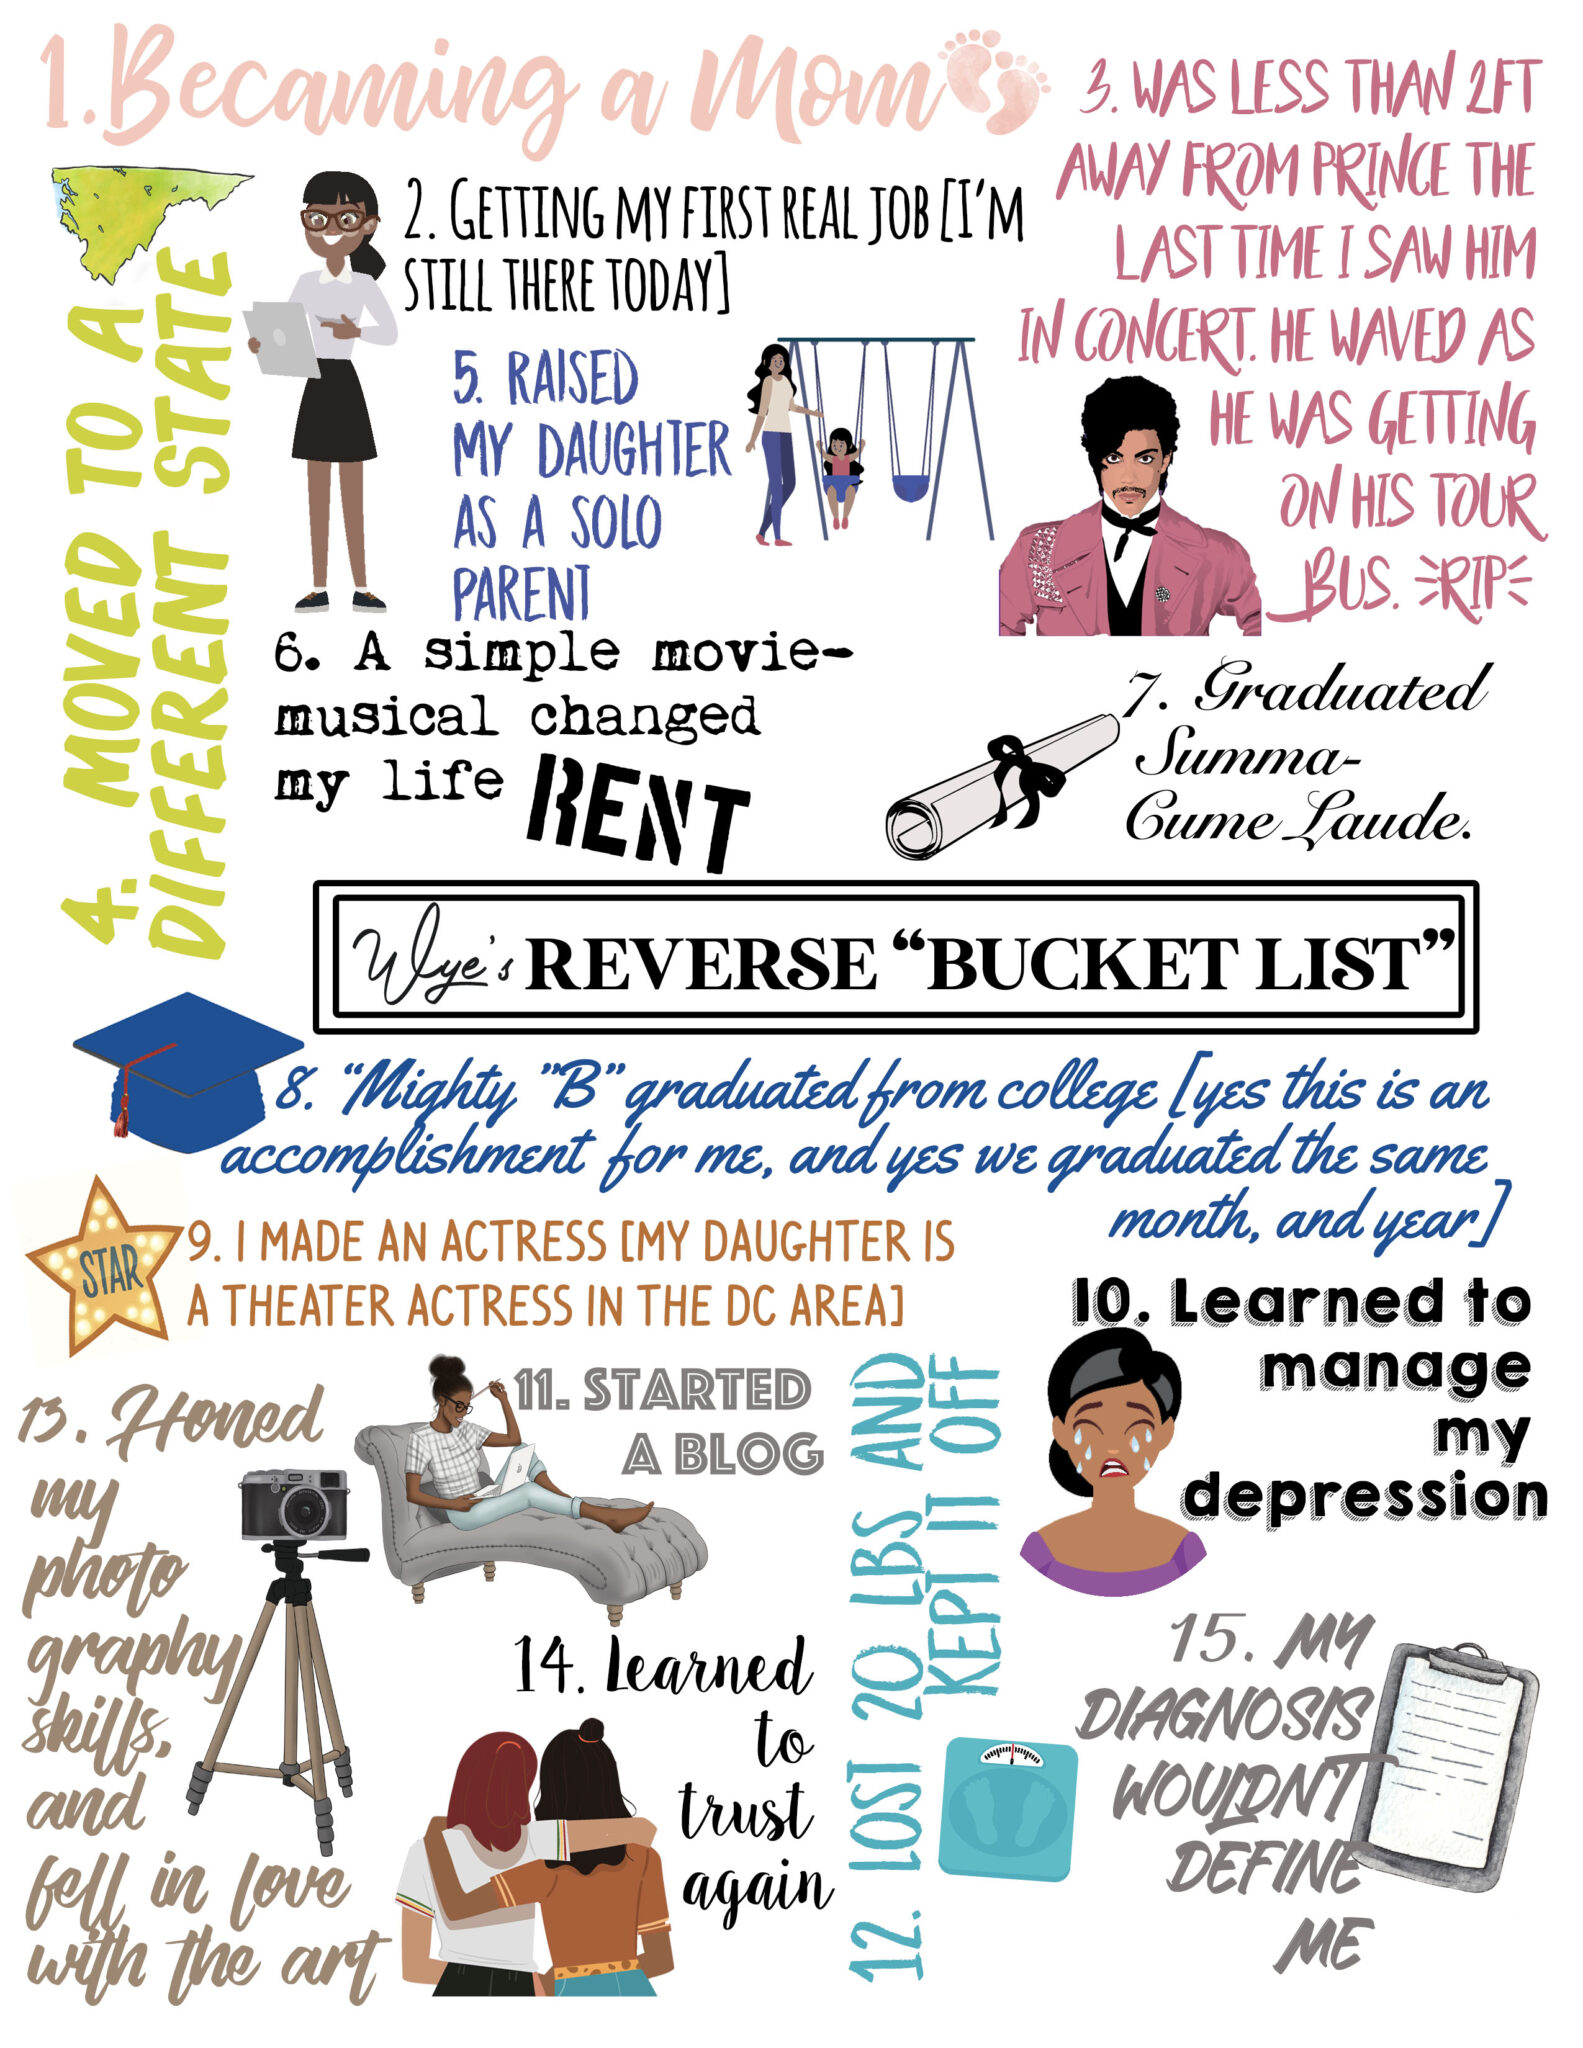 1. Becaming a Mom
2. Getting my first real job [I'm
still there today]
3. WAS LESS THAN 2FT
AWAY FROM PRINCE THE
LAST TIME I SAW HIM
IN CONCERT. HE WAVED AS
HE WAS GETTING
ON HIS TOUR
BUS. RIP
4. MOVED TO A
DIFFERENT STATE
5. RAISED
MY DAUGHTER
AS A SOLO
PARENT
6. A simple movie-
musical changed
my life
RENT
7. Graduated
Summa-
Cume Laude.
Wye's REVERSE “BUCKET LIST”
8. “Mighty ”B” graduated from college [yes this is an
accomplishment for me, and yes we graduated the same
month, and year]
STAR
9. I MADE AN ACTRESS [MY DAUGHTER IS
A THEATER ACTRESS IN THE DC AREA]
10. Learned to
manage
my
depression
11. STARTED
A BLOG
12. LOST 20 LBS AND
KEPT IT OFF
13. Honed
my
photo
graphy
skills,
and
fell in love
with the art
14. Learned
to
trust
again
15. MY
DIAGNOSIS
WOULDN'T
DEFINE
ME